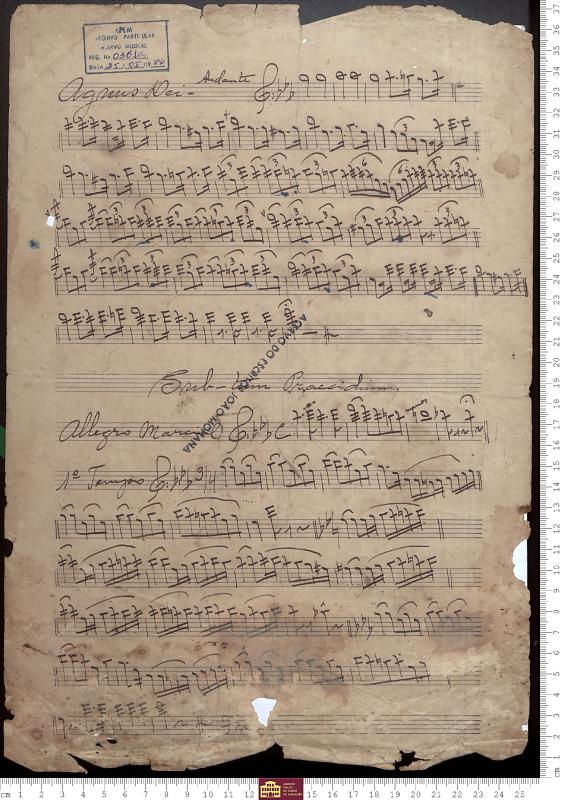 APEM
ARQUIVO PARTICULAR
ACERVO MUSICAL
REG. No 0361/2
DATA 25/05/1988
Agnus Dei - Andante
ACERVO DO ESCRIVÃO JOÃO MOHANA
Sub-tum Praesidium.
Allegro
1º Tempo 3/4
cm 1 2 3 4 5 6 7 8 9 10 11 12 13 14 15 16 17 18 19 20 21 22 23 24 25